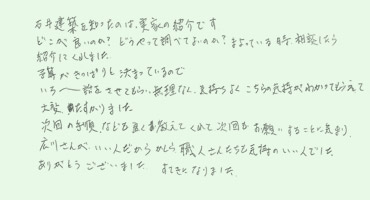 石井建築を知ったのは、実家の紹介です
どこが良いのか？どうやって調べてよいのか？まよっている時、相談したら
紹介してくれました
予算がきっぱりと決まっているので
させてもらい、無理なく、気持ちよくこちらの気持がわかってもらえて
大変助かりました
次回の手順なども良く教えてくれて次回もお願いすることに決まり、
広川さんがいい人だからかしら職人さんたちも気持のいい人でした
ありがとうございました すてきになりました